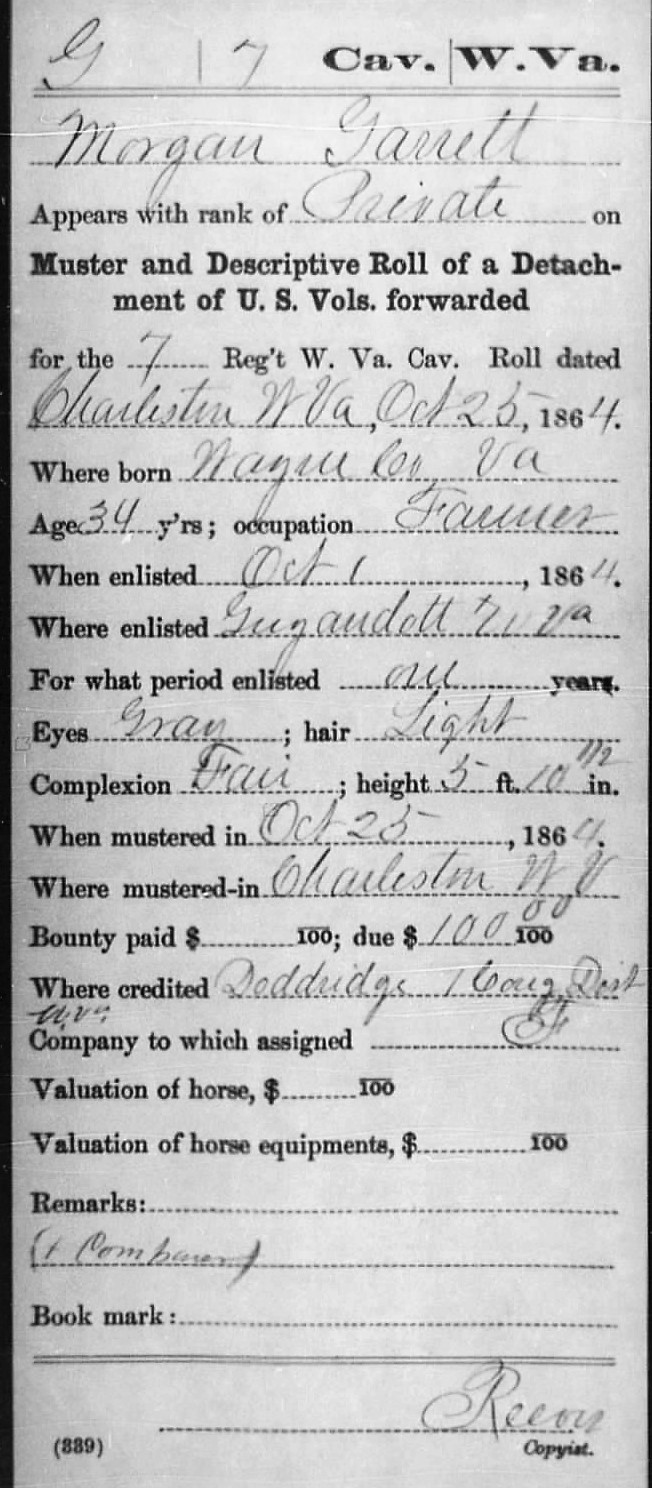 G | 7 Cav. | W. Va.
Morgan Garrett
Appears with rank of Private on
Muster and Descriptive Roll of a Detach-
ment of U. S. Vols. forwarded
for the 7 Reg't W. Va. Cav. Roll dated
Charleston W Va, Oct 25, 1864.
Where born Wayne Co Va
Age 34 y'rs; occupation Farmer
When enlisted Oct 1, 1864.
Where enlisted Guyandott W Va
For what period enlisted one years.
Eyes Gray; hair Light
Complexion Fair; height 5 ft. 10 1/2 in.
When mustered in Oct 25, 1864.
Where mustered-in Charleston W V
Bounty paid $ 100; due $ 100 00/100
Where credited Doddridge 1 Cong Dist
W Va
Company to which assigned
Valuation of horse, $ 100
Valuation of horse equipments, $ 100
Remarks:
Book mark:
(339) Copyist.